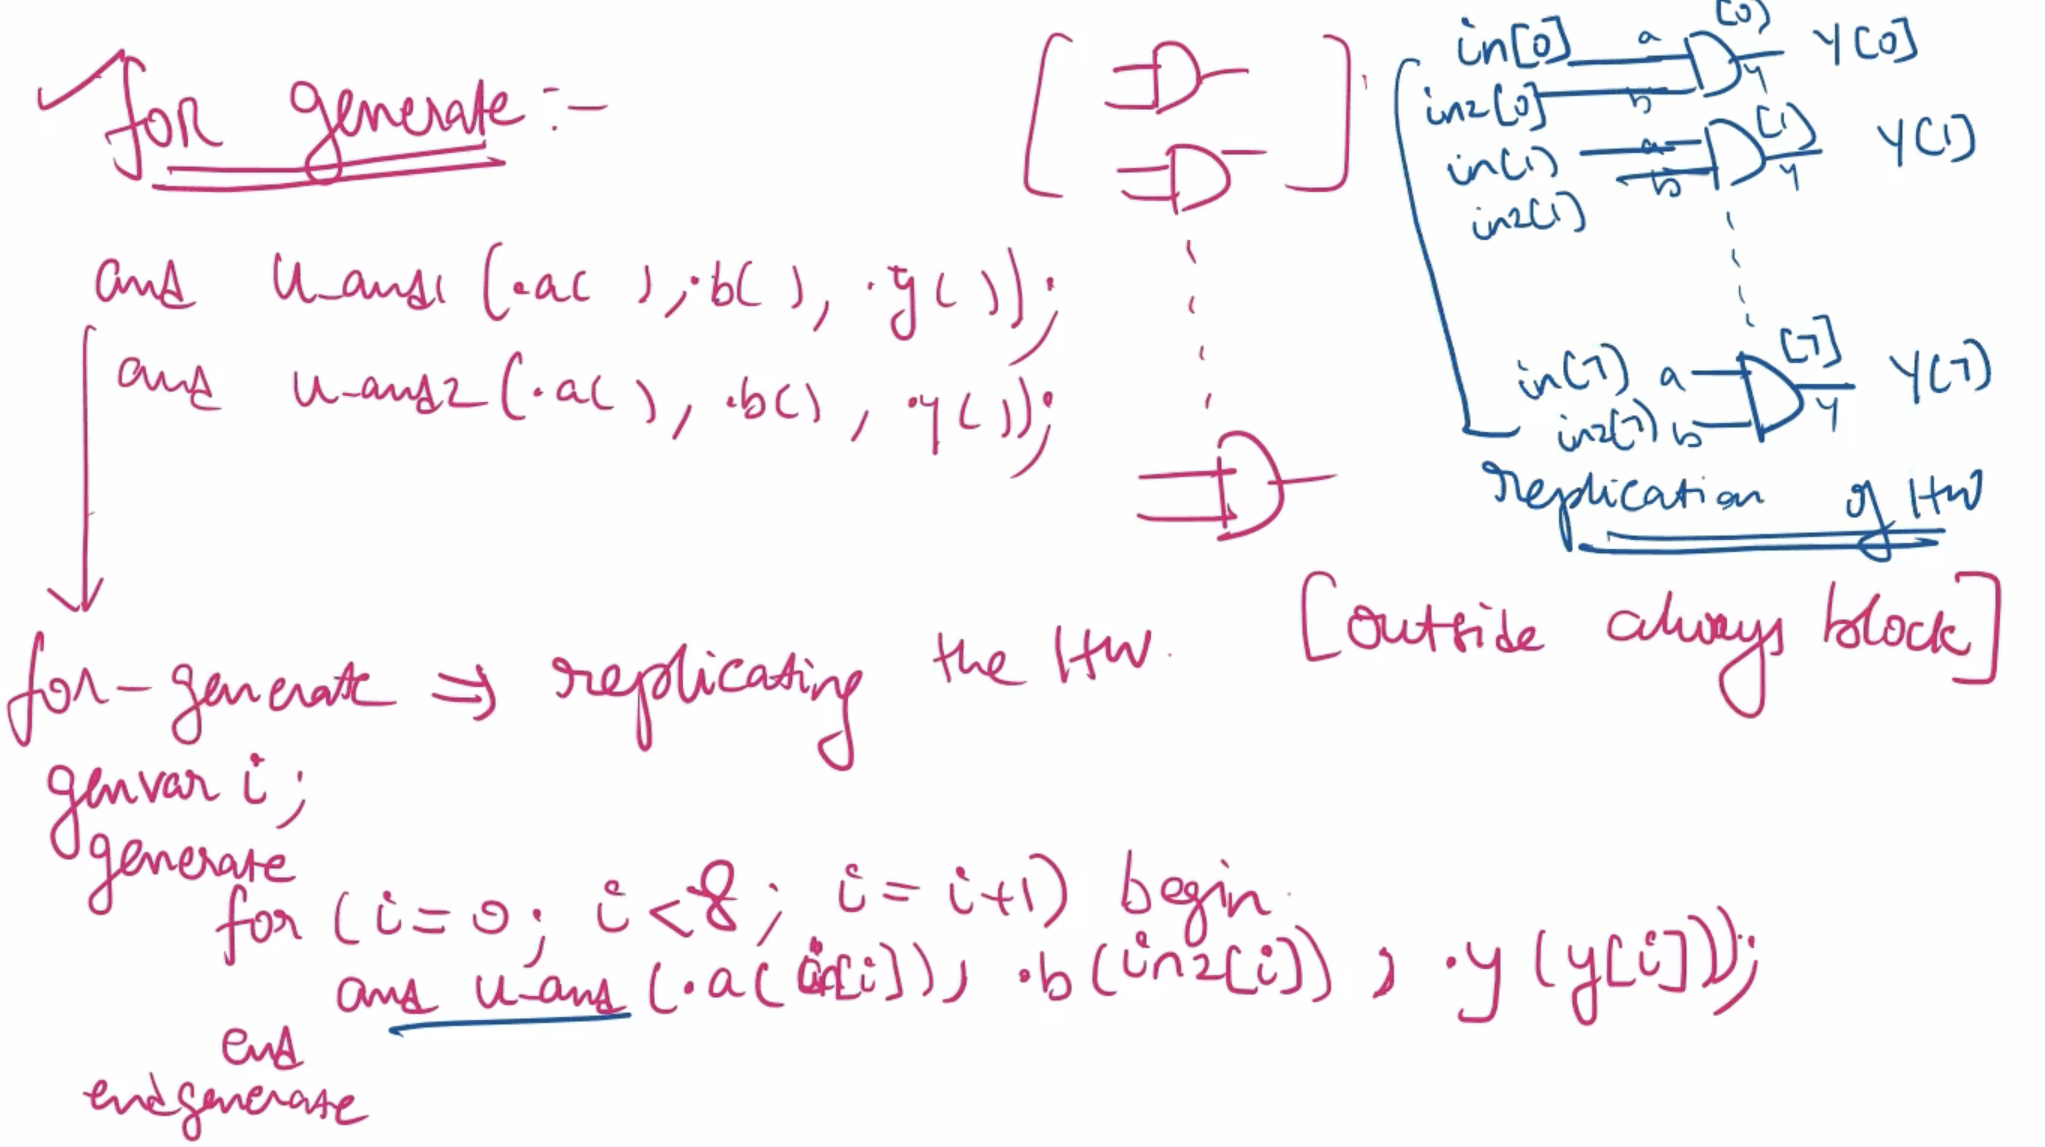 for generate :-
and u_and1 (.a( ), .b( ), .y( ));
and u_and2 (.a( ), .b( ), .y( ));
in[0] a [0] y Y[0]
in2[0] b
in[1] a [1] y Y[1]
in2[1] b
in[7] a [7] y Y[7]
in2[7] b
replication of HW
for-generate ⇒ replicating the HW. [outside always block]
genvar i;
generate
for (i=0; i<8; i=i+1) begin
and u_and (.a(in[i]), .b(in2[i]), .y(y[i]));
end
endgenerate